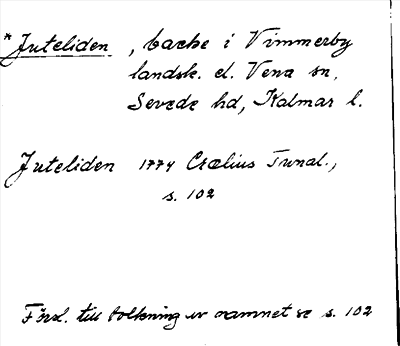 *Juteliden, backe i Vimmerby
landsk. el. Vena sn,
Sevede hd, Kalmar l.
Juteliden 1774 Crælius Tunal.,
s. 102
Förkl. till tolkning av namnet se s. 102